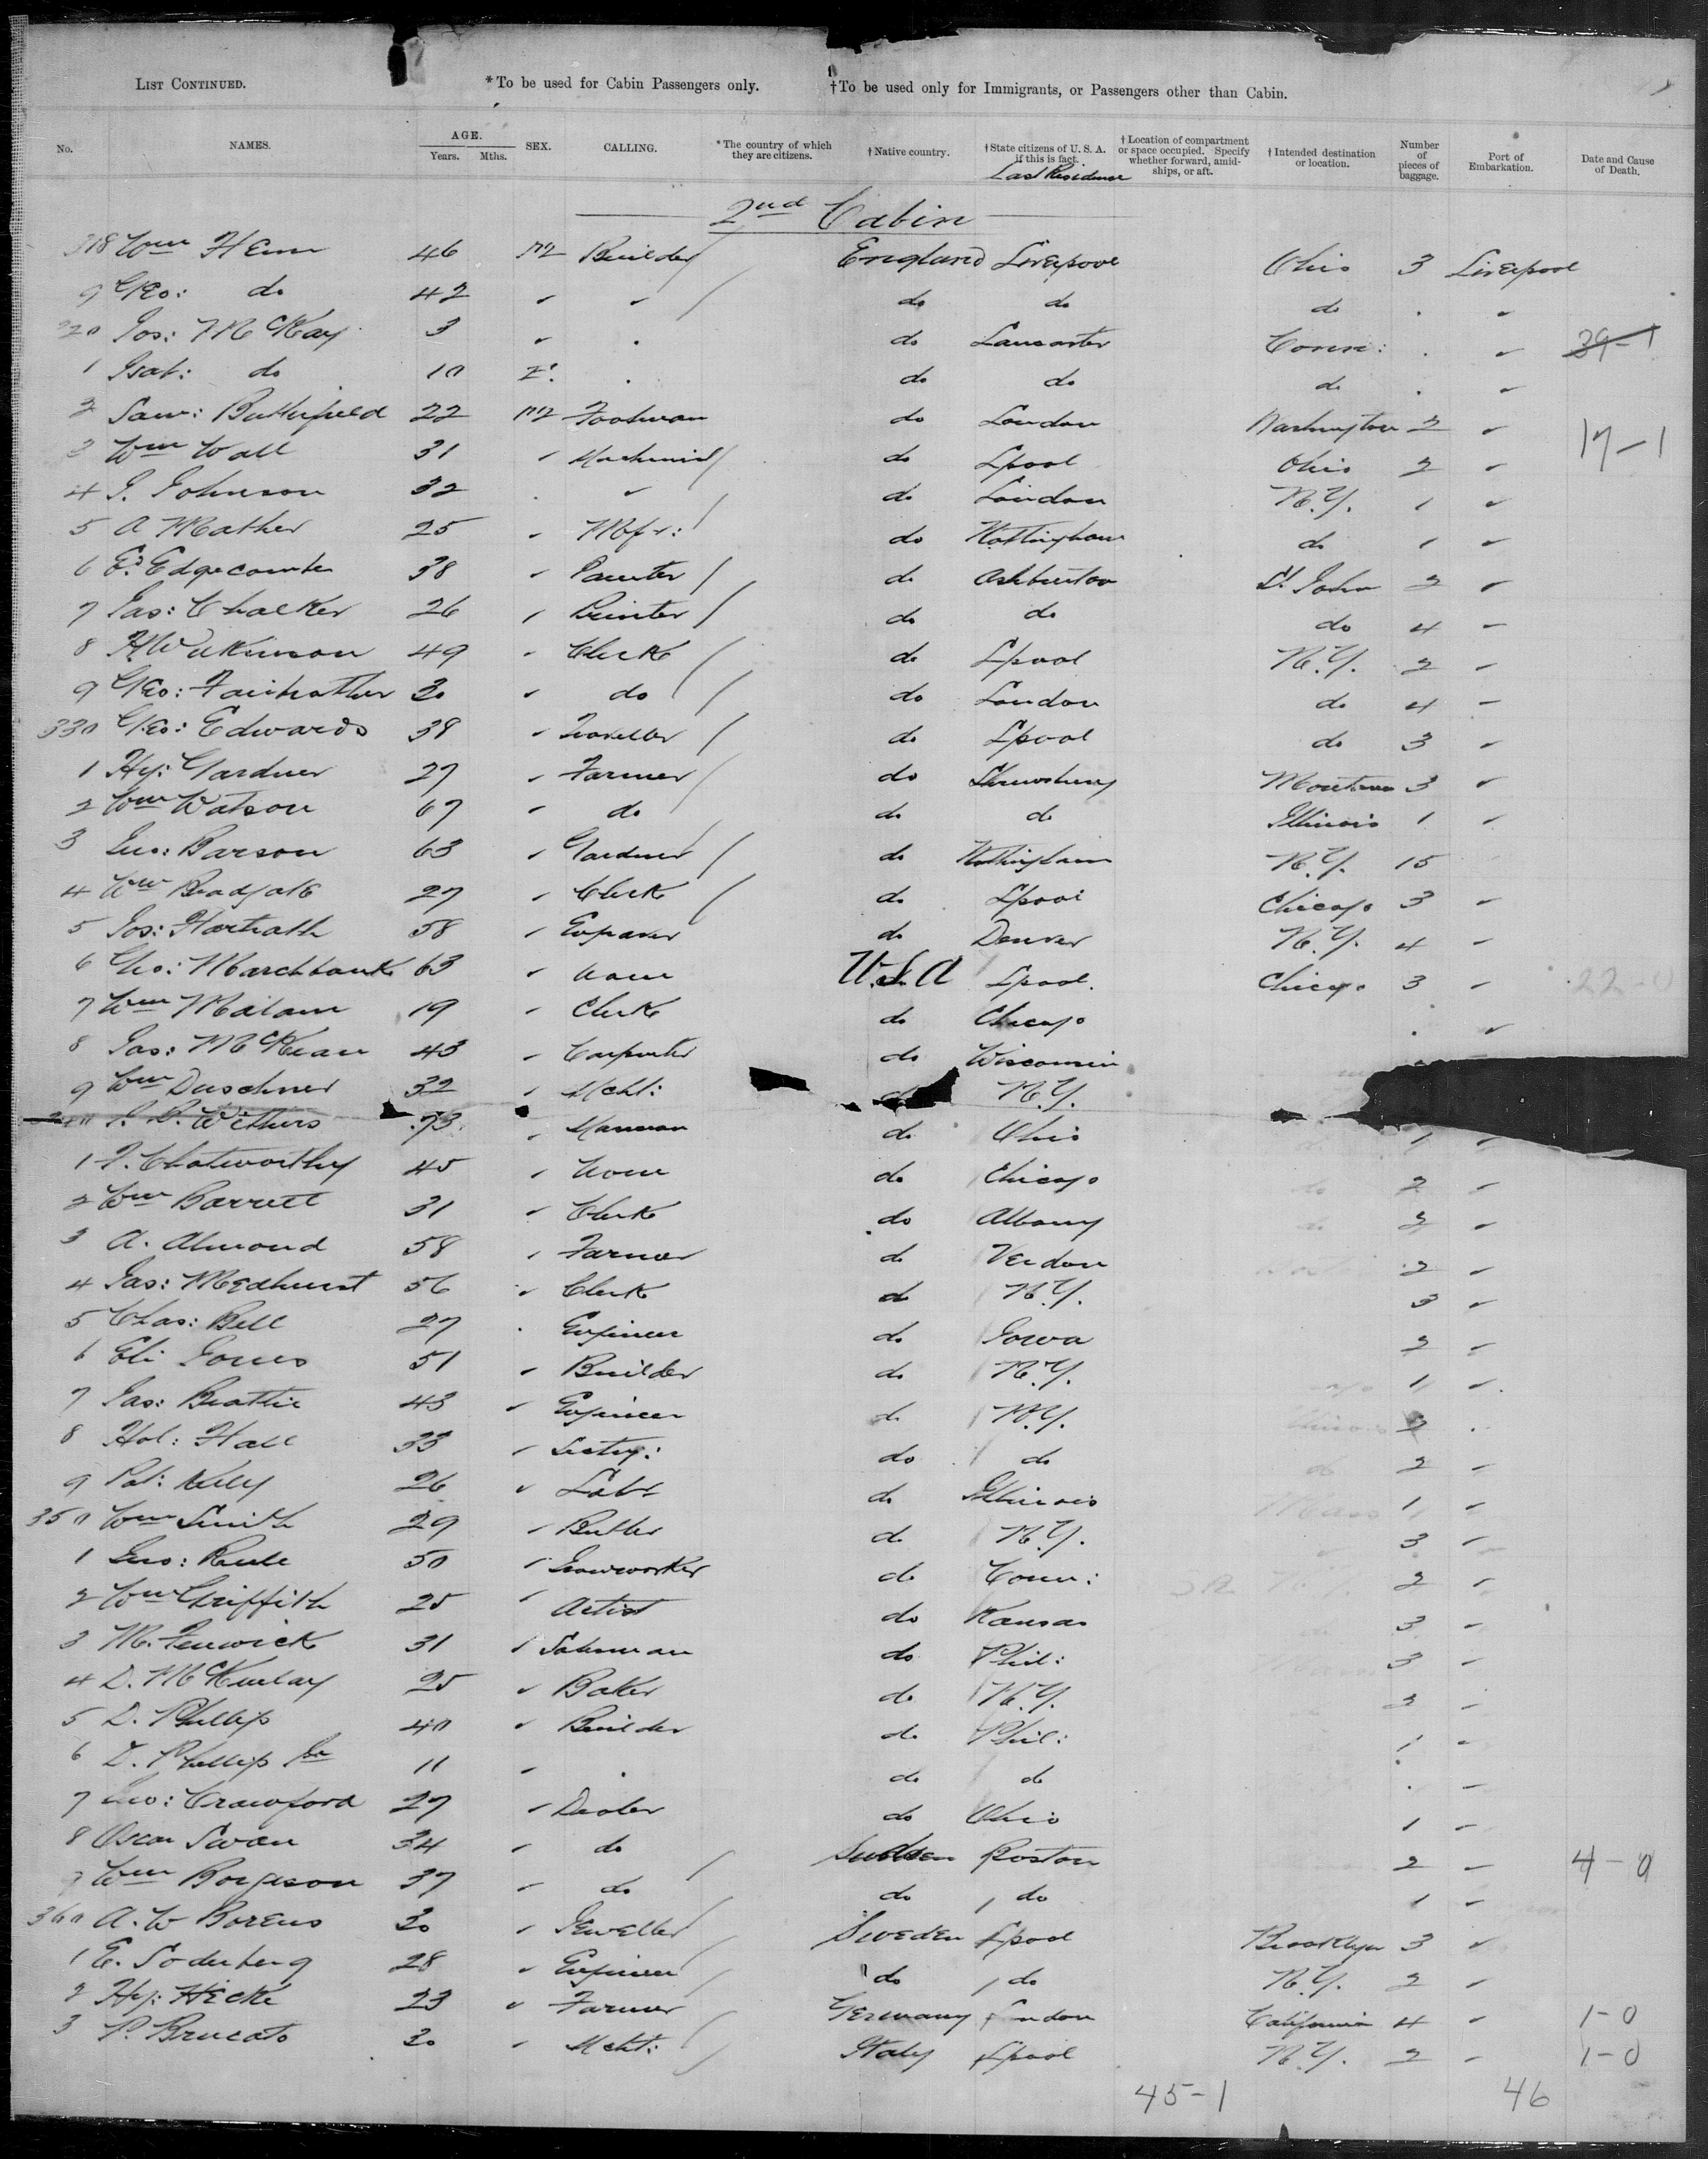 LIST CONTINUED. *To be used for Cabin Passengers only. †To be used only for Immigrants, or Passengers other than Cabin.
No. NAMES. AGE. Years. Mths. SEX. CALLING. *The country of which they are citizens. †Native country. †State citizens of U. S. A. if this is fact. †Location of compartment or space occupied. Specify whether forward, amidships, or aft. †Intended destination or location. Number of pieces of baggage. Port of Embarkation. Date and Cause of Death.
Last Residence
2nd Cabin
318 Wm 46 M Builder England Liverpool Ohio 3 Liverpool
9 Geo: do 42 " " do do do . "
320 Jos: McKay 3 " . do Lancaster Conn: . " 39-1
1 Isab: do 10 F. . do do do . "
2 Sam: Butterfield 22 M Footman do London Washington 2 "
3 Wm Wall 31 " Machinist do Lpool Ohio 2 " 17-1
4 J. Johnson 32 . " do London N.Y. 1 "
5 A Mather 25 " Mfr: do Nottingham do 1 "
6 Ed. Edgecombe 38 " Painter do Ashburton St. John 2 "
7 Jas: Chalker 26 " Printer do do do 4 "
8 H Wilkinson 49 " Clerk do Lpool N.Y. 2 "
9 Geo: Fairweather 30 " do do London do 4 "
330 Geo: Edwards 38 " Traveller do Lpool do 3 "
1 Hy: Gardner 27 " Farmer do Shrewsbury Montana 3 "
2 Wm Watson 67 " do do do Illinois 1 "
3 Jno: Barson 63 " Gardner do Nottingham N.Y. 15
4 Wm Broadgate 27 " Clerk do Lpool Chicago 3 "
5 Jos: Hartrath 58 " Engraver do Denver N.Y. 4 "
6 Marchbank 63 " None U.S.A Lpool. Chicago 3 " 22-0
7 Wm 19 " Clerk do Chicago . "
8 Jas: McKean 43 " Carpenter do Wisconsin
9 Wm Duschner 32 " Mcht: do N.Y.
Withers 73 " do Ohio 1 "
1 Chatworthy 45 " None do Chicago 2 "
2 Wm Barrett 31 " Clerk do Albany 2 "
3 A. Almond 58 " Farmer do Verdon 2 "
4 Jas: Medhurst 56 " Clerk do N.Y. 3 "
5 Chas: Bell 27 . Engineer do Iowa 2 "
6 Eli Jones 51 " Builder do N.Y. 1 "
7 Jas: Beattie 43 " Engineer do N.Y. 2 .
8 Hall 33 " Secty: do do 2 "
9 Pat: Kelly 26 " Labr do Illinois 1 "
350 Wm Smith 29 " Butler do N.Y. 3 "
1 Jno: Rule 50 " Ironworker do Conn: 2 "
2 Wm Griffith 25 " Artist do Kansas 3 "
3 M. Fenwick 31 " Salesman do Phil: 3 "
4 D. McKinlay 25 " Baker do N.Y. 2 "
5 D. Phillip 40 " Builder do Phil: 1 "
6 D. Phillip Jr 11 " . do do . "
7 Jno: Crawford 27 " Dealer do Ohio 1 "
8 Oscar Swan 34 " do Sweden Boston 2 " 4-0
9 Wm Borgeson 37 " do do do 1 "
360 A. W Boreus 30 " Jeweller Sweden Lpool Brooklyn 3 "
1 E. Soderberg 28 " Engineer do do N.Y. 2 "
2 Hy: Hicke 23 " Farmer Germany London California 4 " 1-0
3 P. Brucato 30 " Mcht: Italy Lpool N.Y. 2 " 1-0
45-1 46